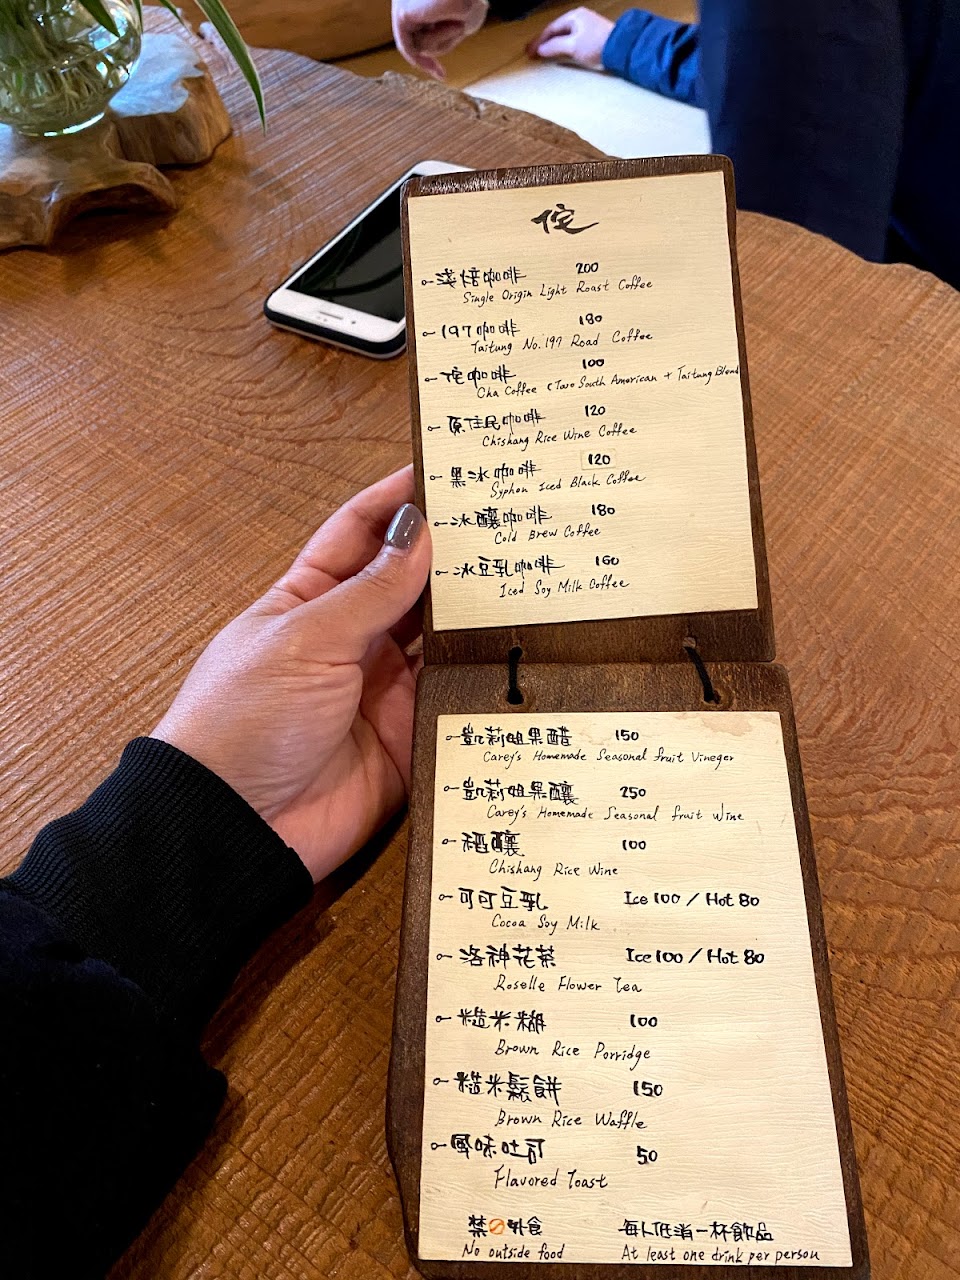 侘
淺焙咖啡 200
Single Origin Light Roast Coffee
197咖啡 180
Taitung No.197 Road Coffee
侘咖啡 100
Cha Coffee (Two South American + Taitung Blend
原住民咖啡 120
Chishang Rice Wine Coffee
黑冰咖啡 120
Syphon Iced Black Coffee
冰釀咖啡 180
Cold Brew Coffee
冰豆乳咖啡 160
Iced Soy Milk Coffee
凱莉姐果醋 150
Carey's Homemade Seasonal fruit Vineger
凱莉姐果釀 250
Carey's Homemade Seasonal fruit Wine
稻釀 100
Chishang Rice Wine
可可豆乳 Ice 100 / Hot 80
Cocoa Soy Milk
洛神花茶 Ice 100 / Hot 80
Roselle Flower Tea
糙米糊 100
Brown Rice Porridge
糙米鬆餅 150
Brown Rice Waffle
風味吐司 50
Flavored Toast
禁外食 每人低消一杯飲品
No outside food At least one drink per person